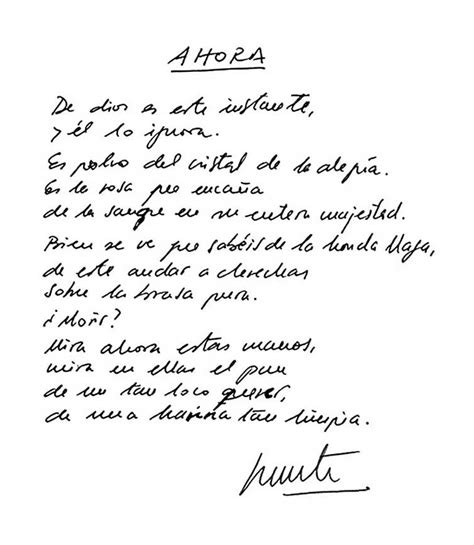 AHORA
De dios es este instante,
y él lo ignora.
Es polvo del cristal de la alegría.
Es la rosa que encaña
de la sangre en su entera majestad.
Bien se ve que sabéis de la honda llaga,
de este andar a derechas
sobre la brasa pura.
¿Morir?
Mira ahora estas manos,
mira en ellas el pan
de un tan loco querer,
de una harina tan limpia.